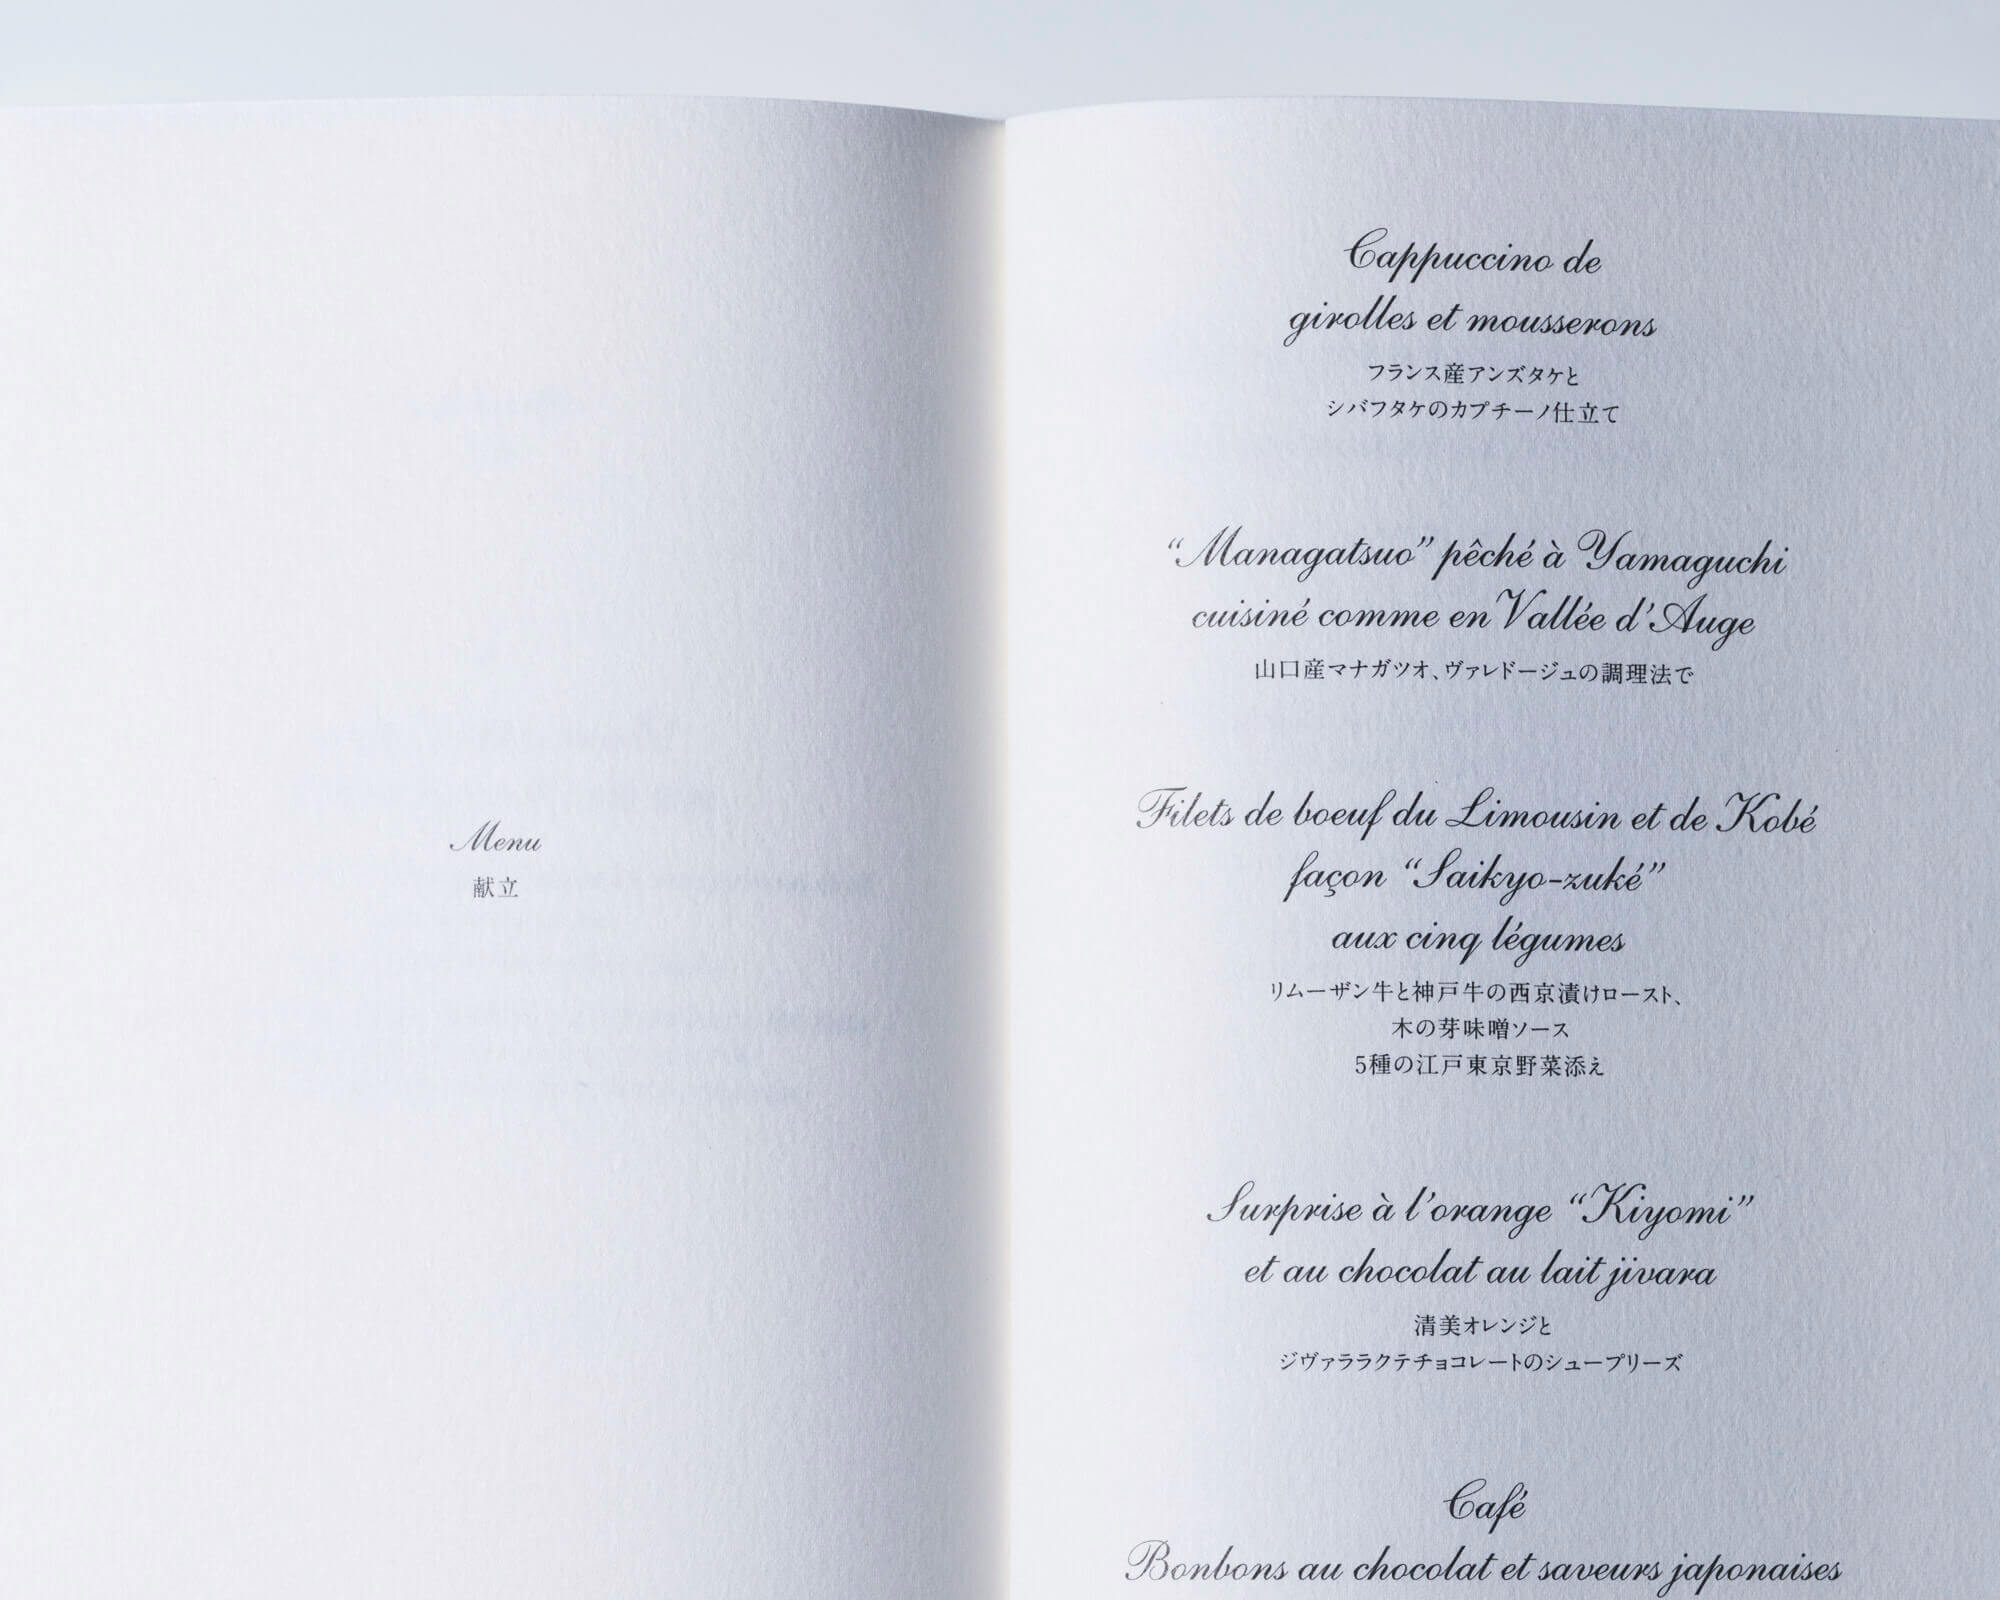 Menu
献立
Cappuccino de
girolles et mousserons
フランス産アンズタケと
シバフタケのカプチーノ仕立て
“Managatsuo” pêché à Yamaguchi
cuisiné comme en Vallée d’Auge
山口産マナガツオ、ヴァレドージュの調理法で
Filets de boeuf du Limousin et de Kobé
façon “Saikyo-zuké”
aux cinq légumes
リムーザン牛と神戸牛の西京漬けロースト、
木の芽味噌ソース
5種の江戸東京野菜添え
Surprise à l’orange “Kiyomi”
et au chocolat au lait jivara
清美オレンジと
ジヴァララクテチョコレートのシュープリーズ
Café
Bonbons au chocolat et saveurs japonaises